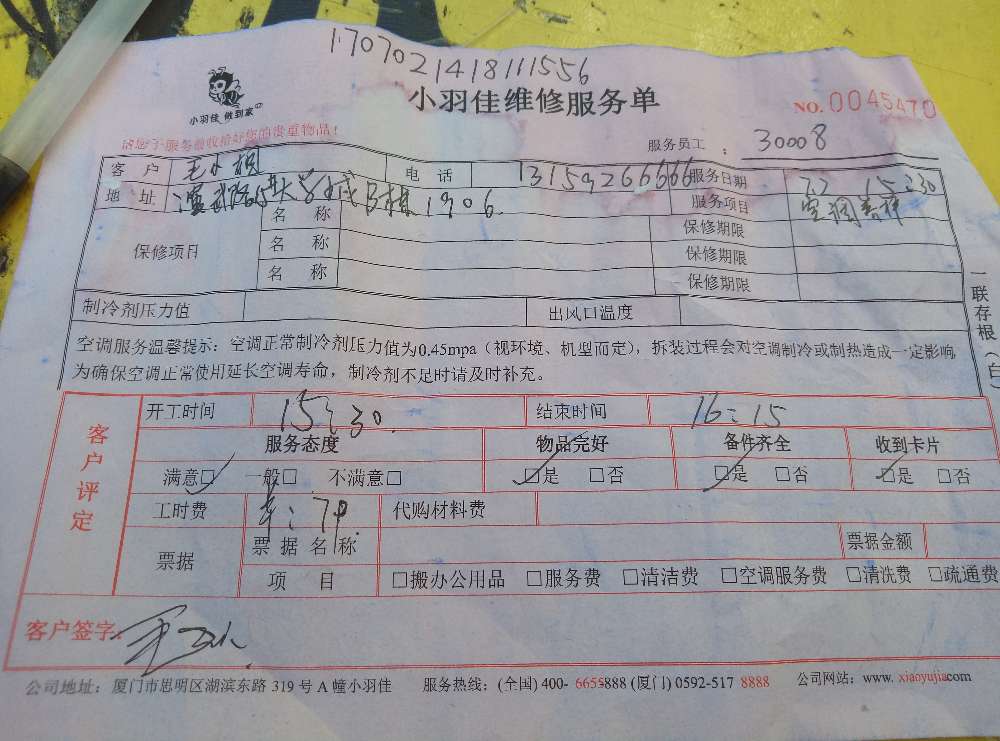 1707021418111556
小羽佳 做到家
小羽佳维修服务单
NO. 0045470
请您于服务前收拾好您的贵重物品!
服务员工: 30008
客户 毛小姐 电话 13159266666 服务日期 15:30
地址 1906 服务项目 空调
保修项目 名称 保修期限
名称 保修期限
名称 保修期限
制冷剂压力值 出风口温度
空调服务温馨提示:空调正常制冷剂压力值为0.45mpa(视环境、机型而定),拆装过程会对空调制冷或制热造成一定影响
为确保空调正常使用延长空调寿命,制冷剂不足时请及时补充。
一联存根(白)
客户评定
开工时间 15:30. 结束时间 16:15
服务态度 物品完好 备件齐全 收到卡片
满意□ 一般□ 不满意□ □是 □否 □是 □否 □是 □否
工时费 代购材料费
票据 票据名称 票据金额
项目 □搬办公用品 □服务费 □清洁费 □空调服务费 □清洗费 □疏通费
客户签字:
公司地址:厦门市思明区湖滨东路 319 号 A 幢小羽佳 服务热线:(全国) 400-6655-888 (厦门) 0592-517 8888 公司网站:www. xiaoyujia.com